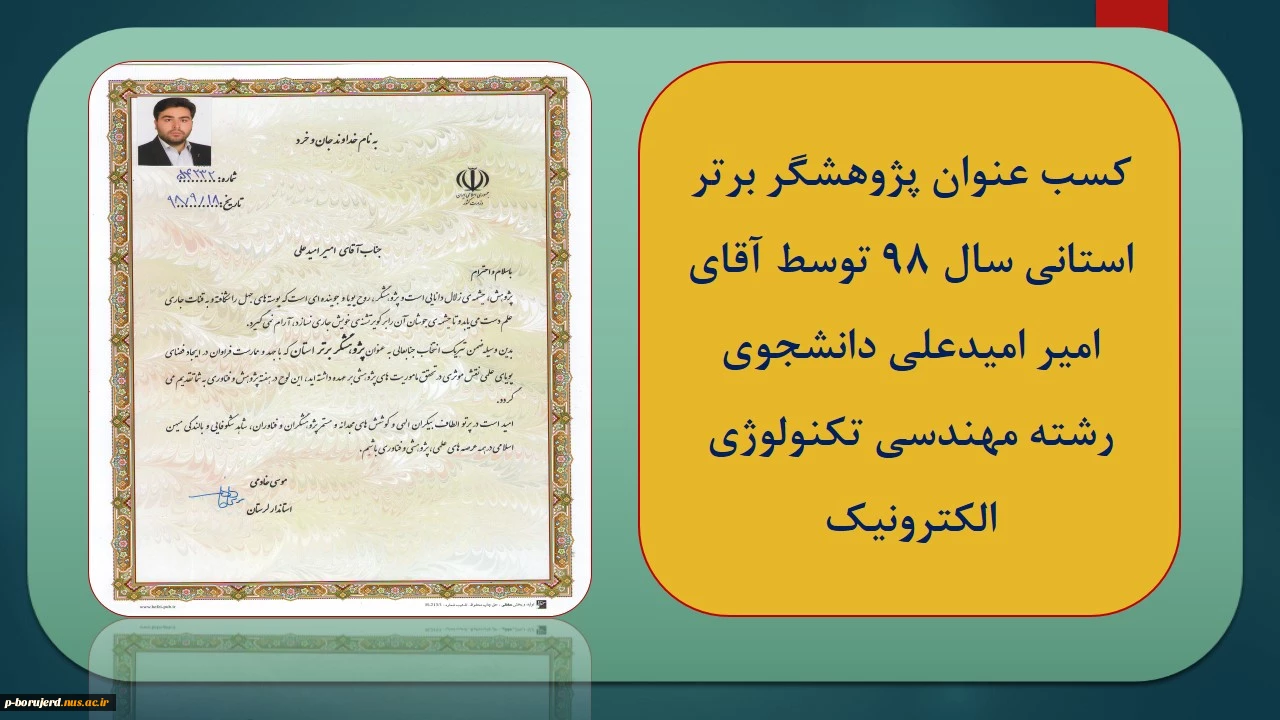 کسب عنوان پژوهشگر برتر
استانی سال ۹۸ توسط آقای
امیر امیدعلی دانشجوی
رشته مهندسی تکنولوژی
الکترونیک
به نام خداوند جان و خرد
شماره:
تاریخ: ۹۸/۹/۱۸
جمهوری اسلامی ایران
وزارت کشور
جناب آقای امیر امیدعلی
باسلام و احترام
پژوهش، چشمه ی زلال دانایی است و پژوهشگر، روح پویا و جوینده ای است که پوسته های جهل را شکافته و به قنات جاری
علم دست می یابد و تا چشمه ی جوشان آن را بر کویر تشنه ی خویش جاری نسازد، آرام نمی گیرد.
بدین وسیله ضمن تبریک انتخاب جنابعالی به عنوان پژوهشگر برتر استان که با جهد و ممارست فراوان در ایجاد فضای
پویای علمی نقش موثری در تحقق ماموریت های پژوهشی بر عهده داشته اید، این لوح در هفته پژوهش و فناوری به شما تقدیم می
گردد.
امید است در پرتو الطاف بیکران الهی و کوشش های مجدانه و مستمر پژوهشگران و فناوران، شاهد شکوفایی و بالندگی میهن
اسلامی در همه عرصه های علمی، پژوهشی و فناوری باشیم.
موسی خادمی
استاندار لرستان
p-borujerd.nus.ac.ir